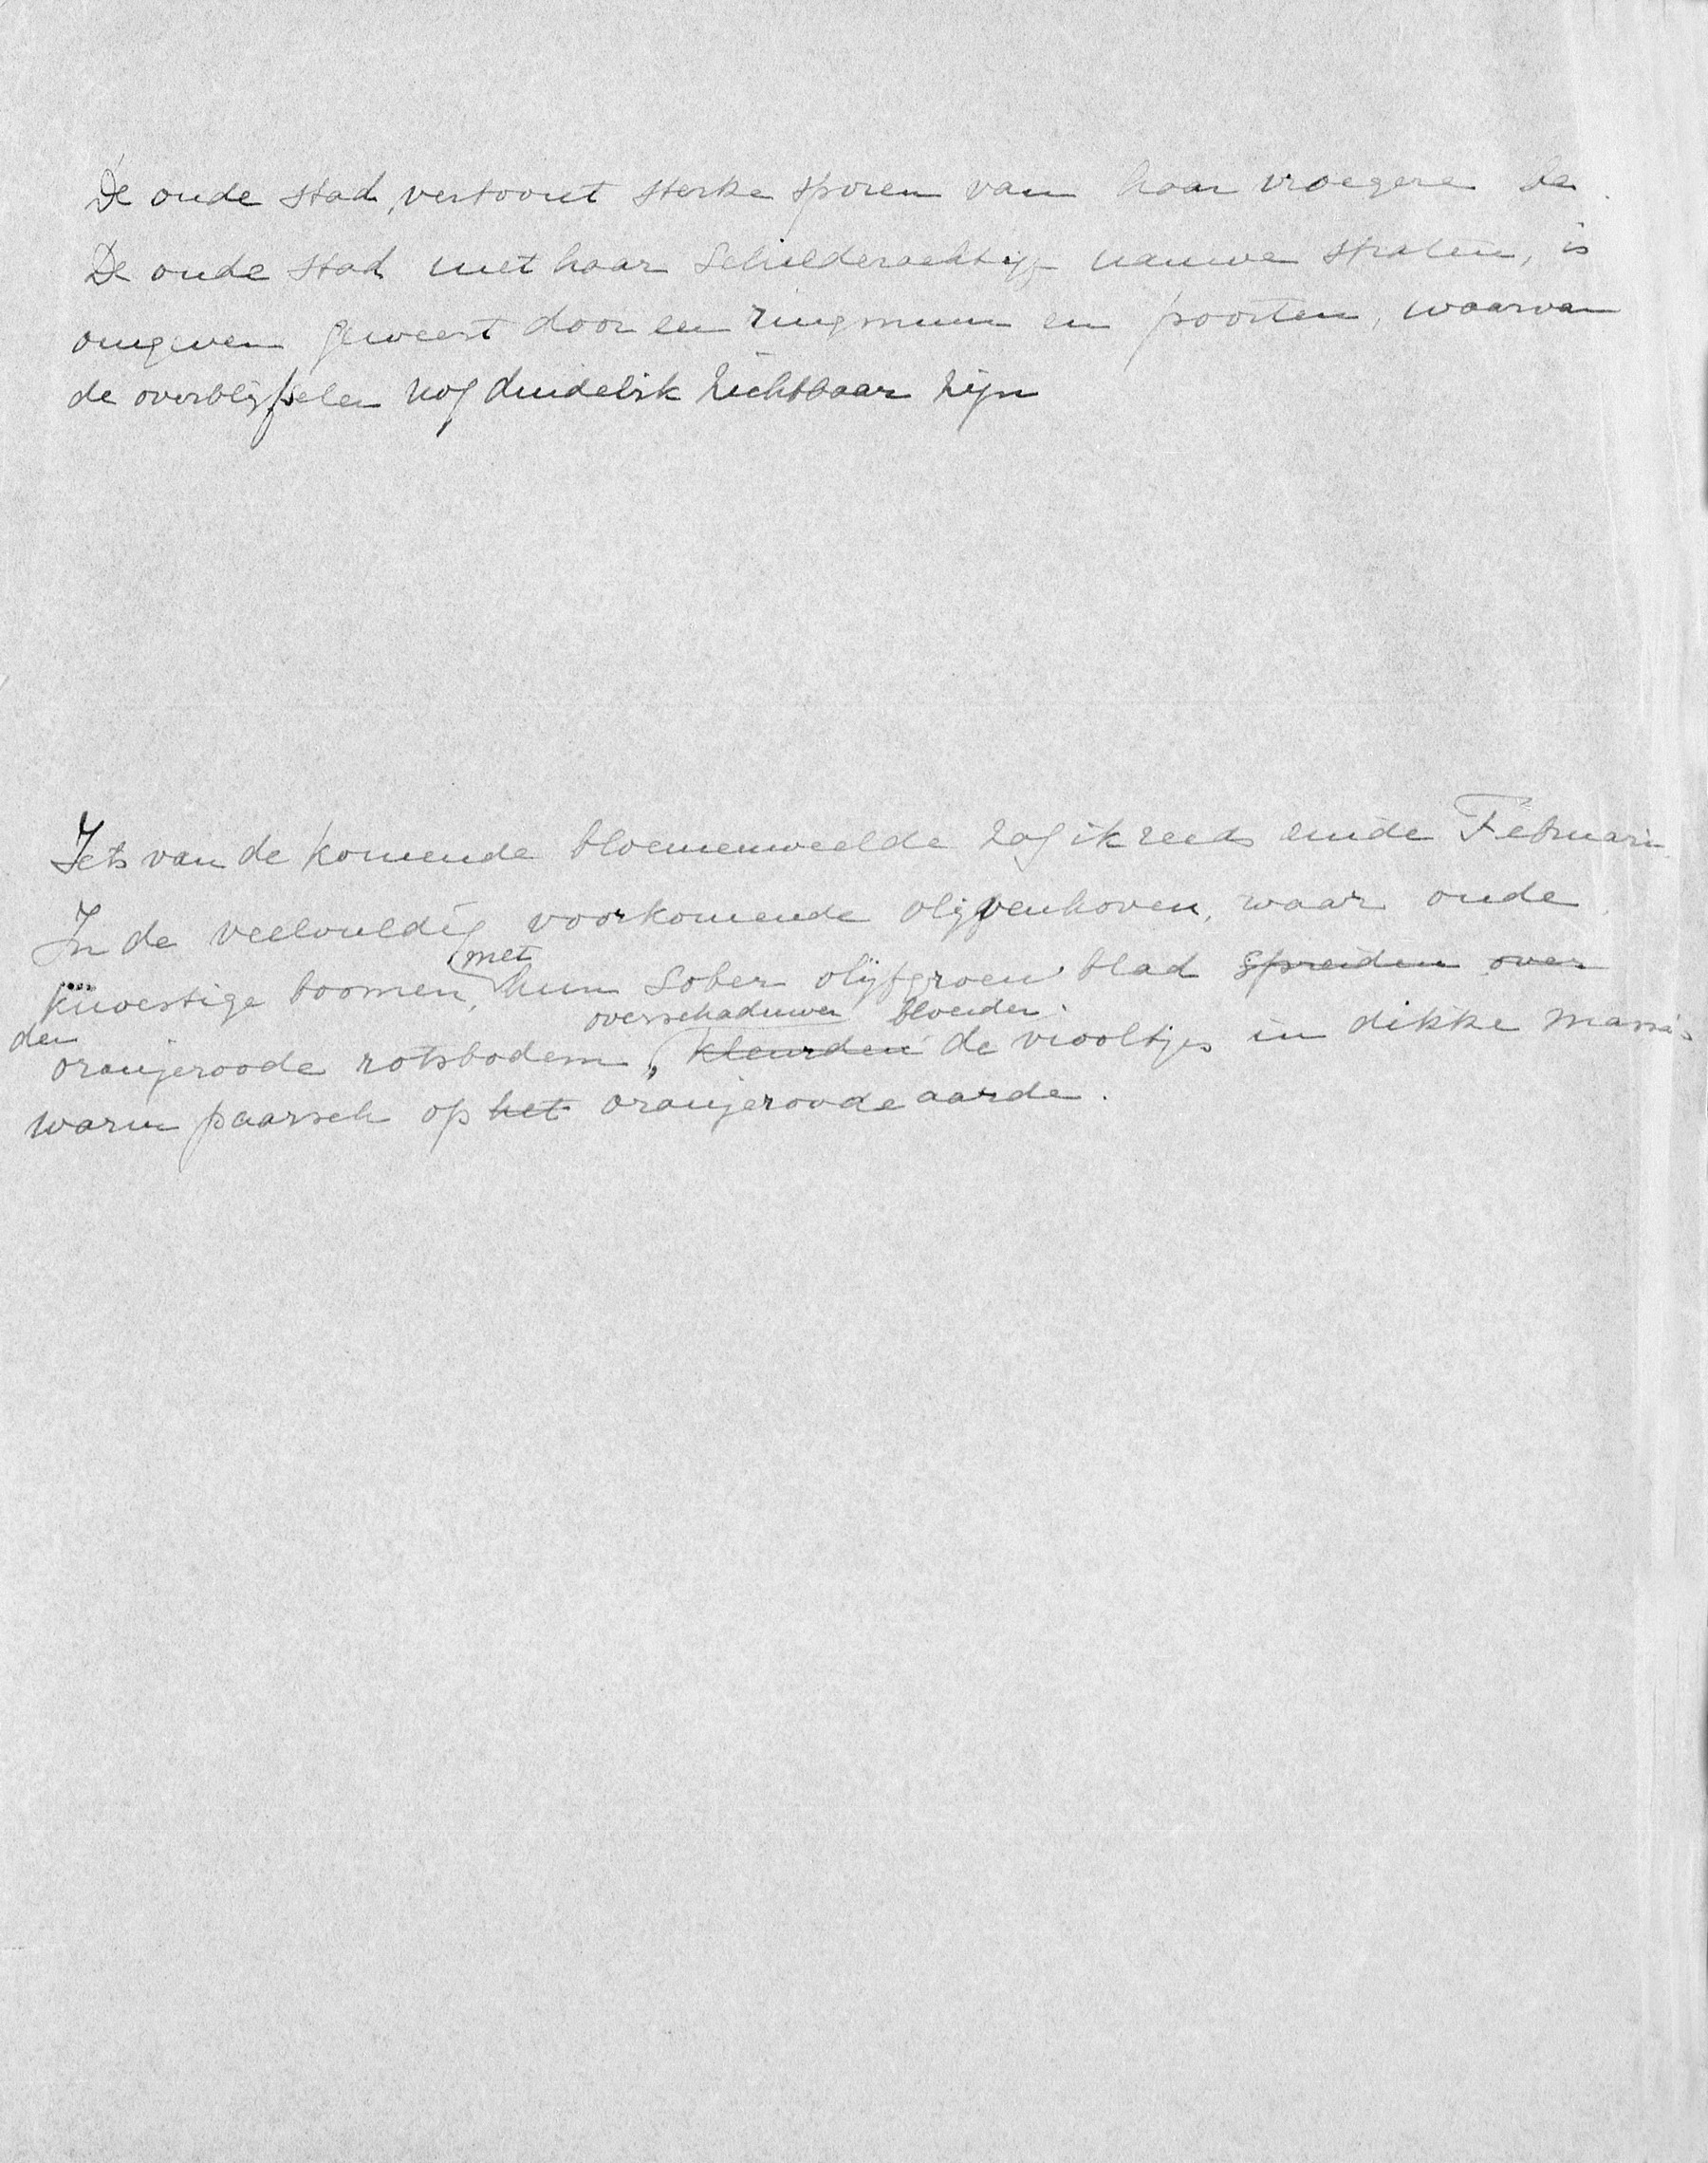 De oude stad, vertoont sterke sporen van haar vroegere be
De oude stad met haar schilderachtige nauwe straten, is
omgeven geweest door een ringmuur en poorten, waarvan
de overblijfselen nog duidelijk zichtbaar zijn
Iets van de komende bloemenweelde zag ik reeds einde Februari
In de veelvuldig voorkomende olijvenhoven, waar oude
met
boomen, hun sober olijfgroen blad spreiden over
overschaduwen bloeiden
den
oranjeroode rotsbodem, kleurden de viooltjes in dikke massa's
warm paarsch op het oranjeroode aarde.